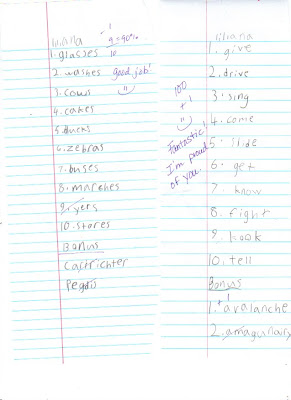 +1
9=90%
10
1. glasses
2. washes good job!
3. cows
4. cakes
5. ducks
6. zebras
7. buses
8. marches
9. yers
10. stores
Bonus
Pegdis
liliana
1. give
2. drive
3. sing
4. come
5. slide
6. get
7. know
8. fight
9. kook
10. tell
Bonus
+1
1. avalanche
2. amagunary
100
+1
Fantastic!
I'm proud
of you.